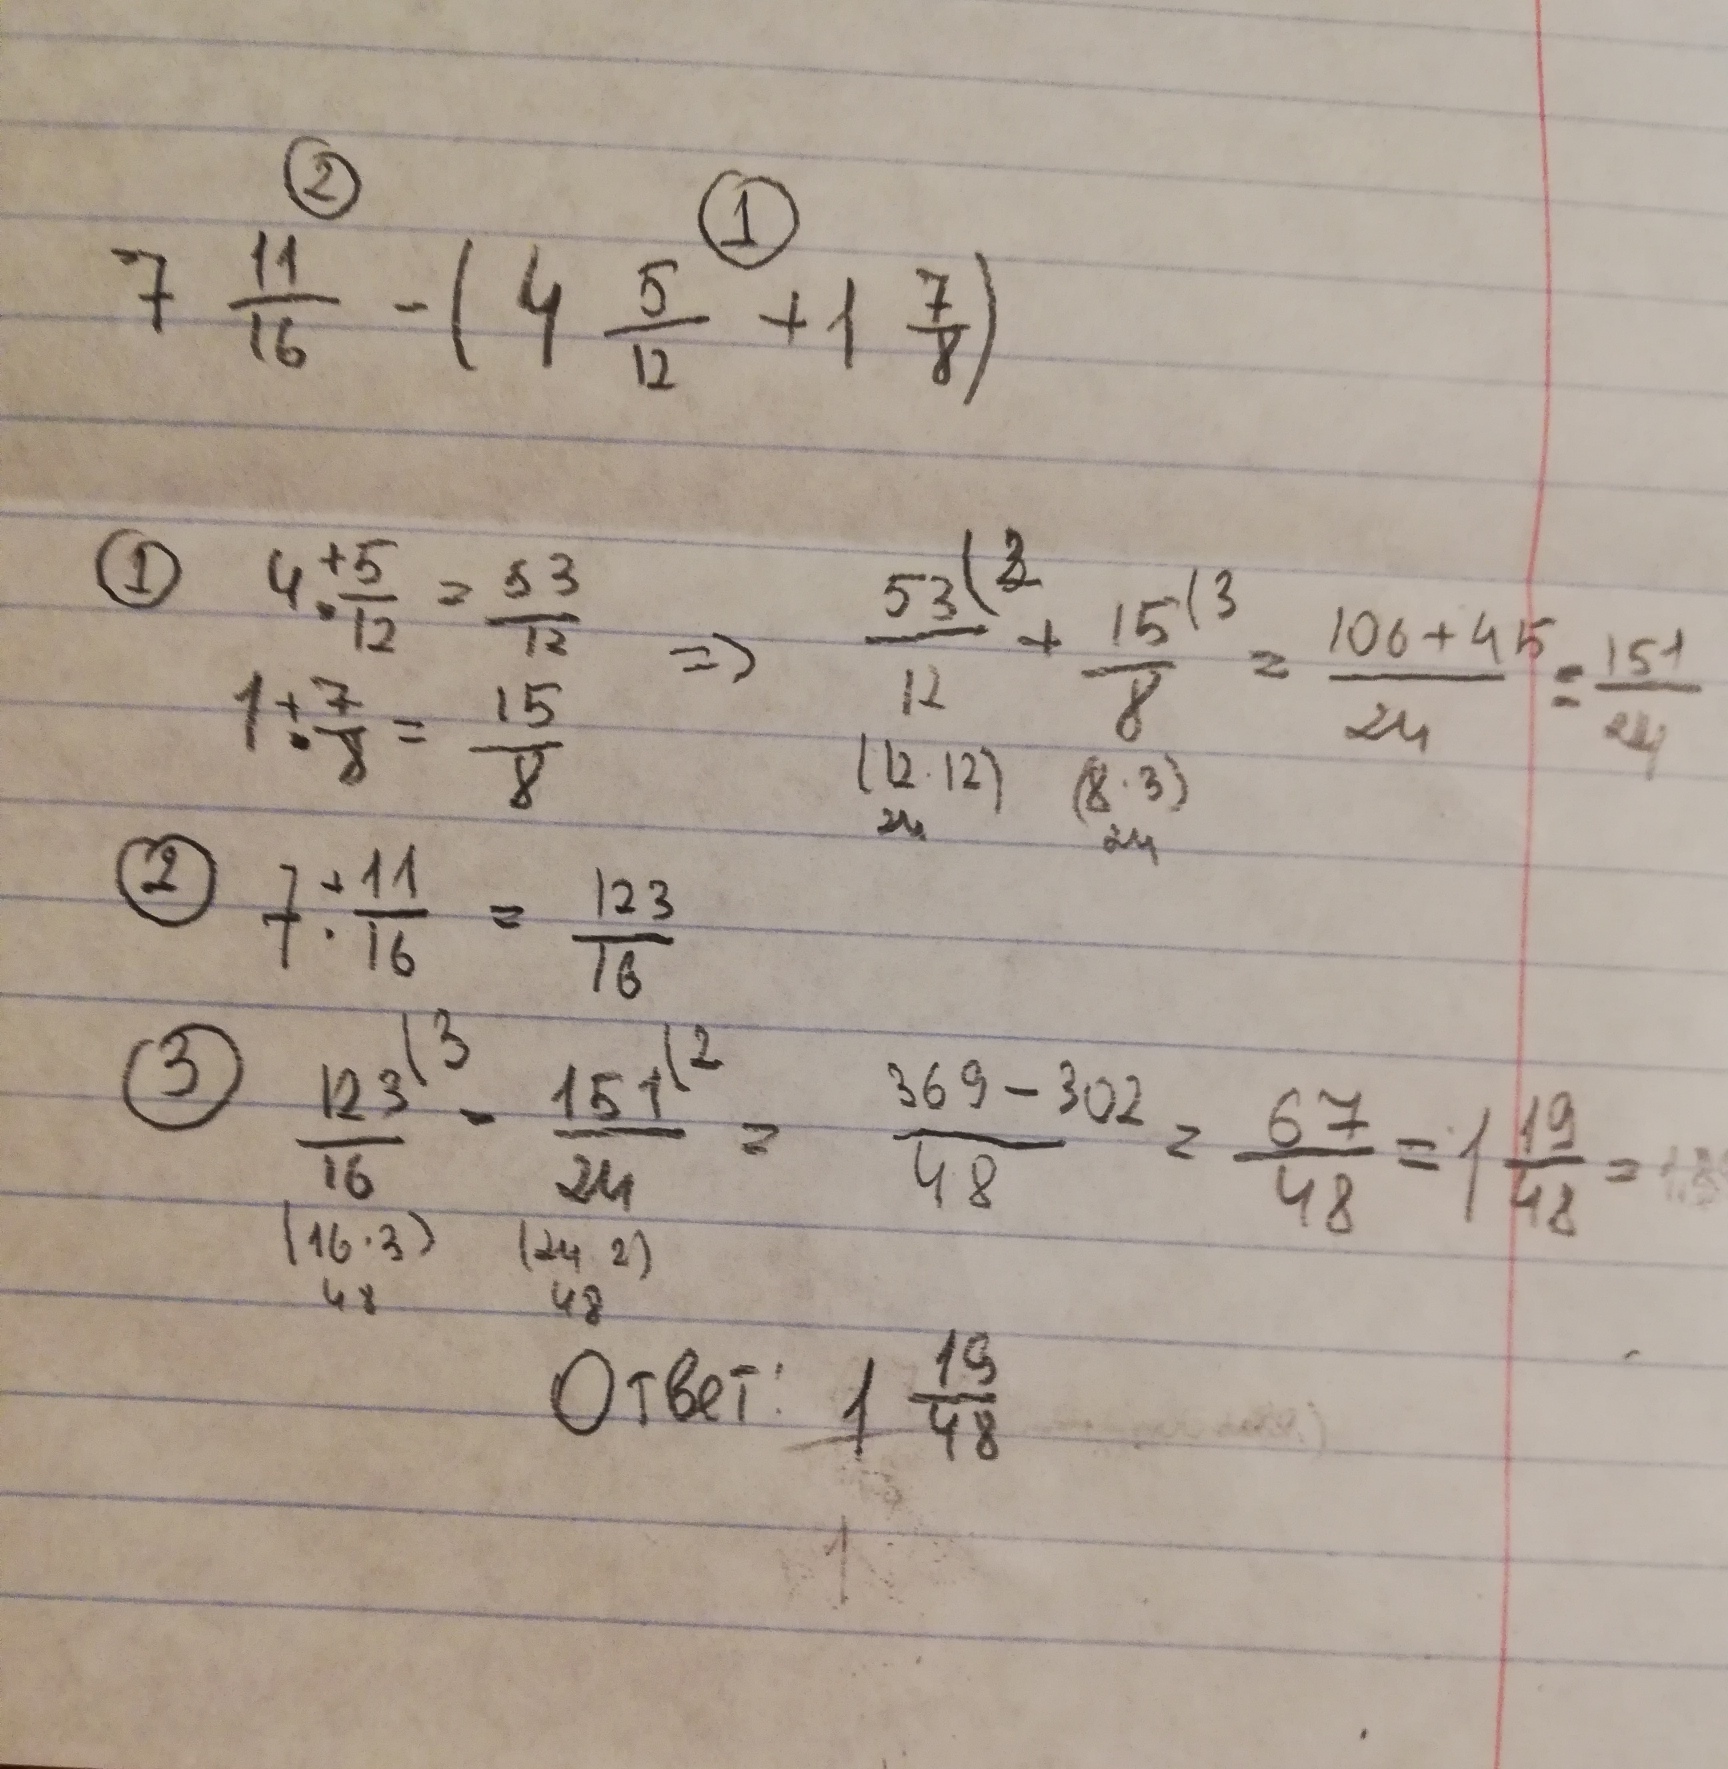 ② ①
7 11/16 - (4 5/12 + 1 7/8)
① 4 · + 5/12 = 53/12 => 53/12 (2 + 15/8 (3 = 106+45/24 = 151/24
1 · + 7/8 = 15/8
(12·12) (8·3)
24 24
② 7 · + 11/16 = 123/16
③ 123/16 (3 - 151/24 (2 = 369-302/48 = 67/48 = 1 19/48 =
(16·3) (24·2)
48 48
Ответ: 1 19/48
1